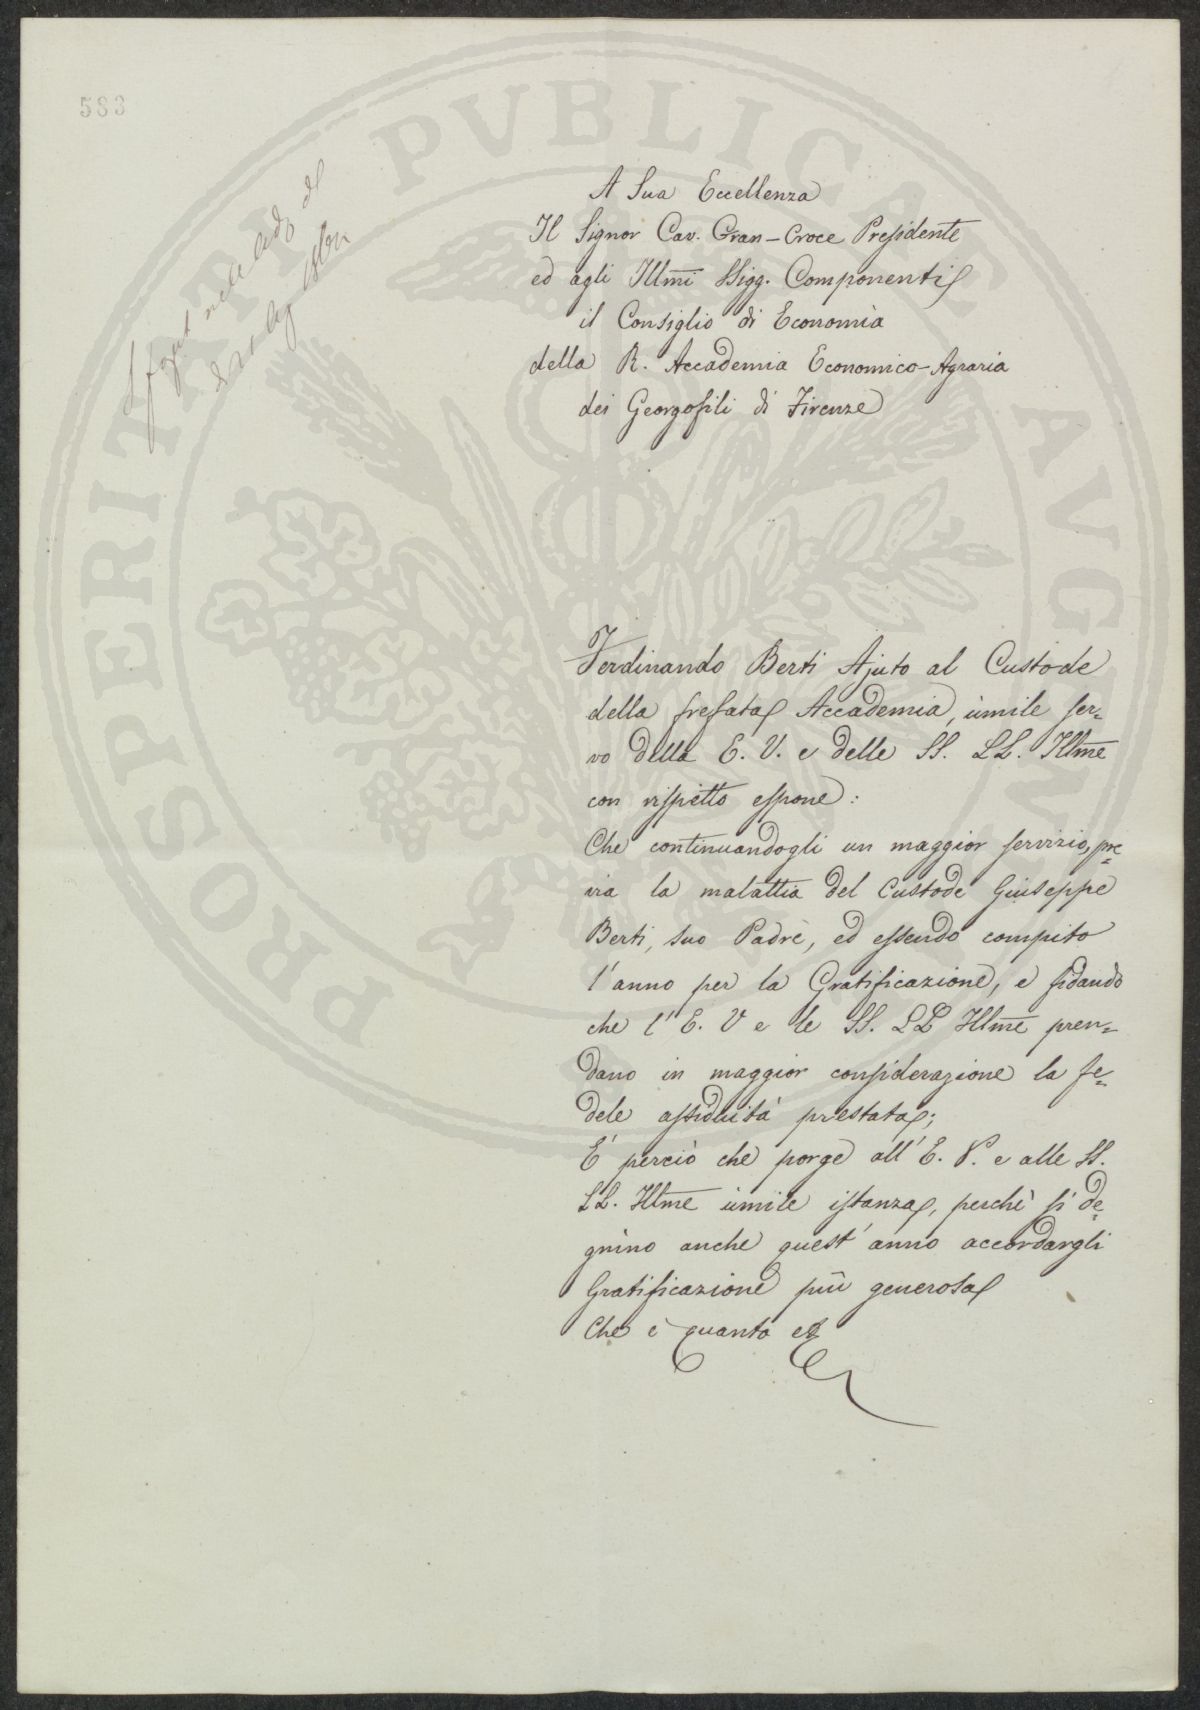 583
A Sua Eccellenza
Il Signor Cav. Gran-Croce Presidente
ed agli Illmi SSigg. Componenti
il Consiglio di Economia
della R. Accademia Economico-Agraria
dei Georgofili di Firenze
Ferdinando Berti Ajuto al Custode
della prefata Accademia, umile ser=
vo della E. V. e delle SS. LL. Illme
con rispetto espone:
Che continuandogli un maggior servizio, pre=
via la malattia del Custode Giuseppe
Berti, suo Padre, ed essendo compito
l'anno per la Gratificazione, e fidando
che l'E. V e le SS. LL Illme pren=
dano in maggior considerazione la fe=
dele assiduità prestata;
E' perciò che porge all'E. V. e alle SS.
LL. Illme umile istanza, perchè si de=
gnino anche quest'anno accordargli
Gratificazione più generosa
Che è quanto
PROSPERITATI PVBLICAE AVGENDAE